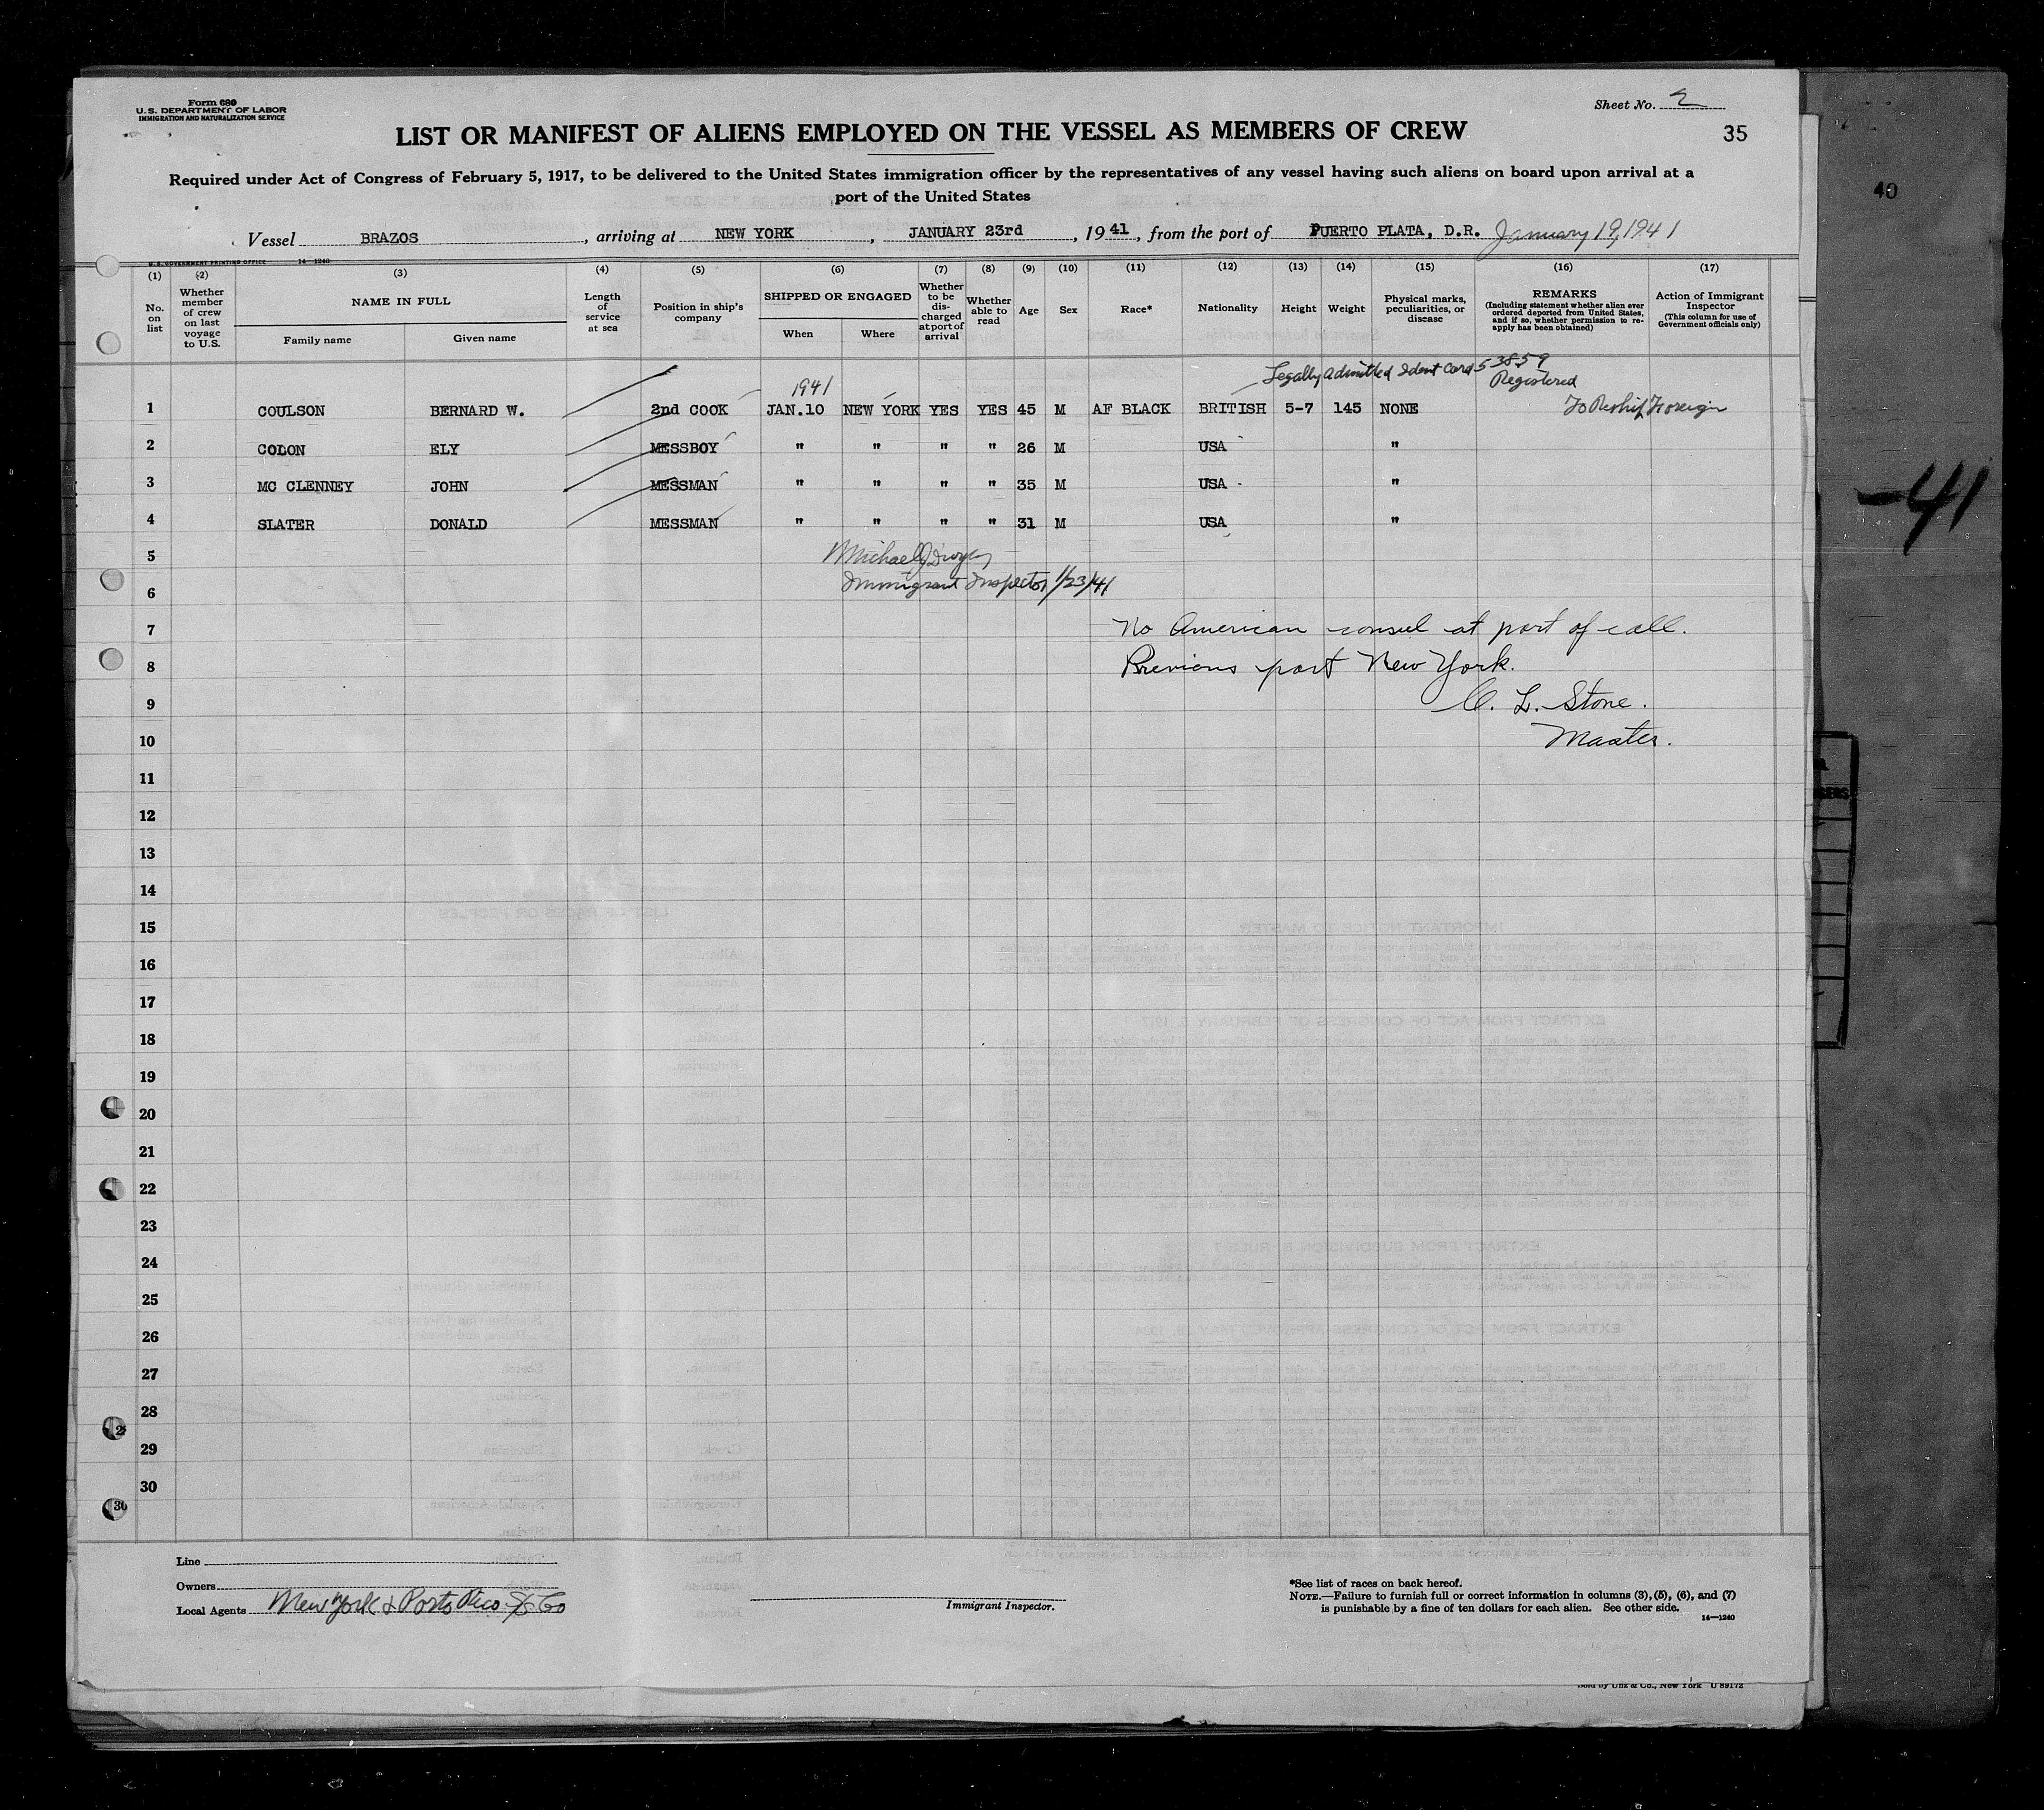 Form 680
U. S. DEPARTMENT OF LABOR
IMMIGRATION AND NATURALIZATION SERVICE
Sheet No. 2
LIST OR MANIFEST OF ALIENS EMPLOYED ON THE VESSEL AS MEMBERS OF CREW
35
40
Required under Act of Congress of February 5, 1917, to be delivered to the United States immigration officer by the representatives of any vessel having such aliens on board upon arrival at a
port of the United States
Vessel BRAZOS, arriving at NEW YORK, JANUARY 23rd, 1941, from the port of PUERTO PLATA, D.R. January 19, 1941
U. S. GOVERNMENT PRINTING OFFICE 14—1240
(1) (2) (3) (4) (5) (6) (7) (8) (9) (10) (11) (12) (13) (14) (15) (16) (17)
No. on list
Whether member of crew on last voyage to U.S.
NAME IN FULL
Family name Given name
Length of service at sea
Position in ship's company
SHIPPED OR ENGAGED
When Where
Whether to be discharged at port of arrival
Whether able to read
Age
Sex
Race*
Nationality
Height
Weight
Physical marks, peculiarities, or disease
REMARKS
(Including statement whether alien ever ordered deported from United States, and if so, whether permission to re-apply has been obtained)
Action of Immigrant Inspector
(This column for use of Government officials only)
Legally Admitted Ident Card 53859
1941 Registered
1 COULSON BERNARD W. 2nd COOK JAN.10 NEW YORK YES YES 45 M AF BLACK BRITISH 5-7 145 NONE To Reship Foreign
2 COLON ELY MESSBOY " " " " 26 M USA "
3 MC CLENNEY JOHN MESSMAN " " " " 35 M USA "
4 SLATER DONALD MESSMAN " " " " 31 M USA "
5 Michael J
6 Immigrant Inspector 1/23/41
7 No American consul at port of call.
8 Previous port New York.
9 C. L. Stone.
10 Master.
11
12
13
14
15
16
17
18
19
20
21
22
23
24
25
26
27
28
29
30
-41
Line
Owners
Local Agents New York & Porto Rico S/S Co
Immigrant Inspector.
*See list of races on back hereof.
NOTE.—Failure to furnish full or correct information in columns (3), (5), (6), and (7)
is punishable by a fine of ten dollars for each alien. See other side.
14—1240
Sold by Unz & Co., New York U 89172